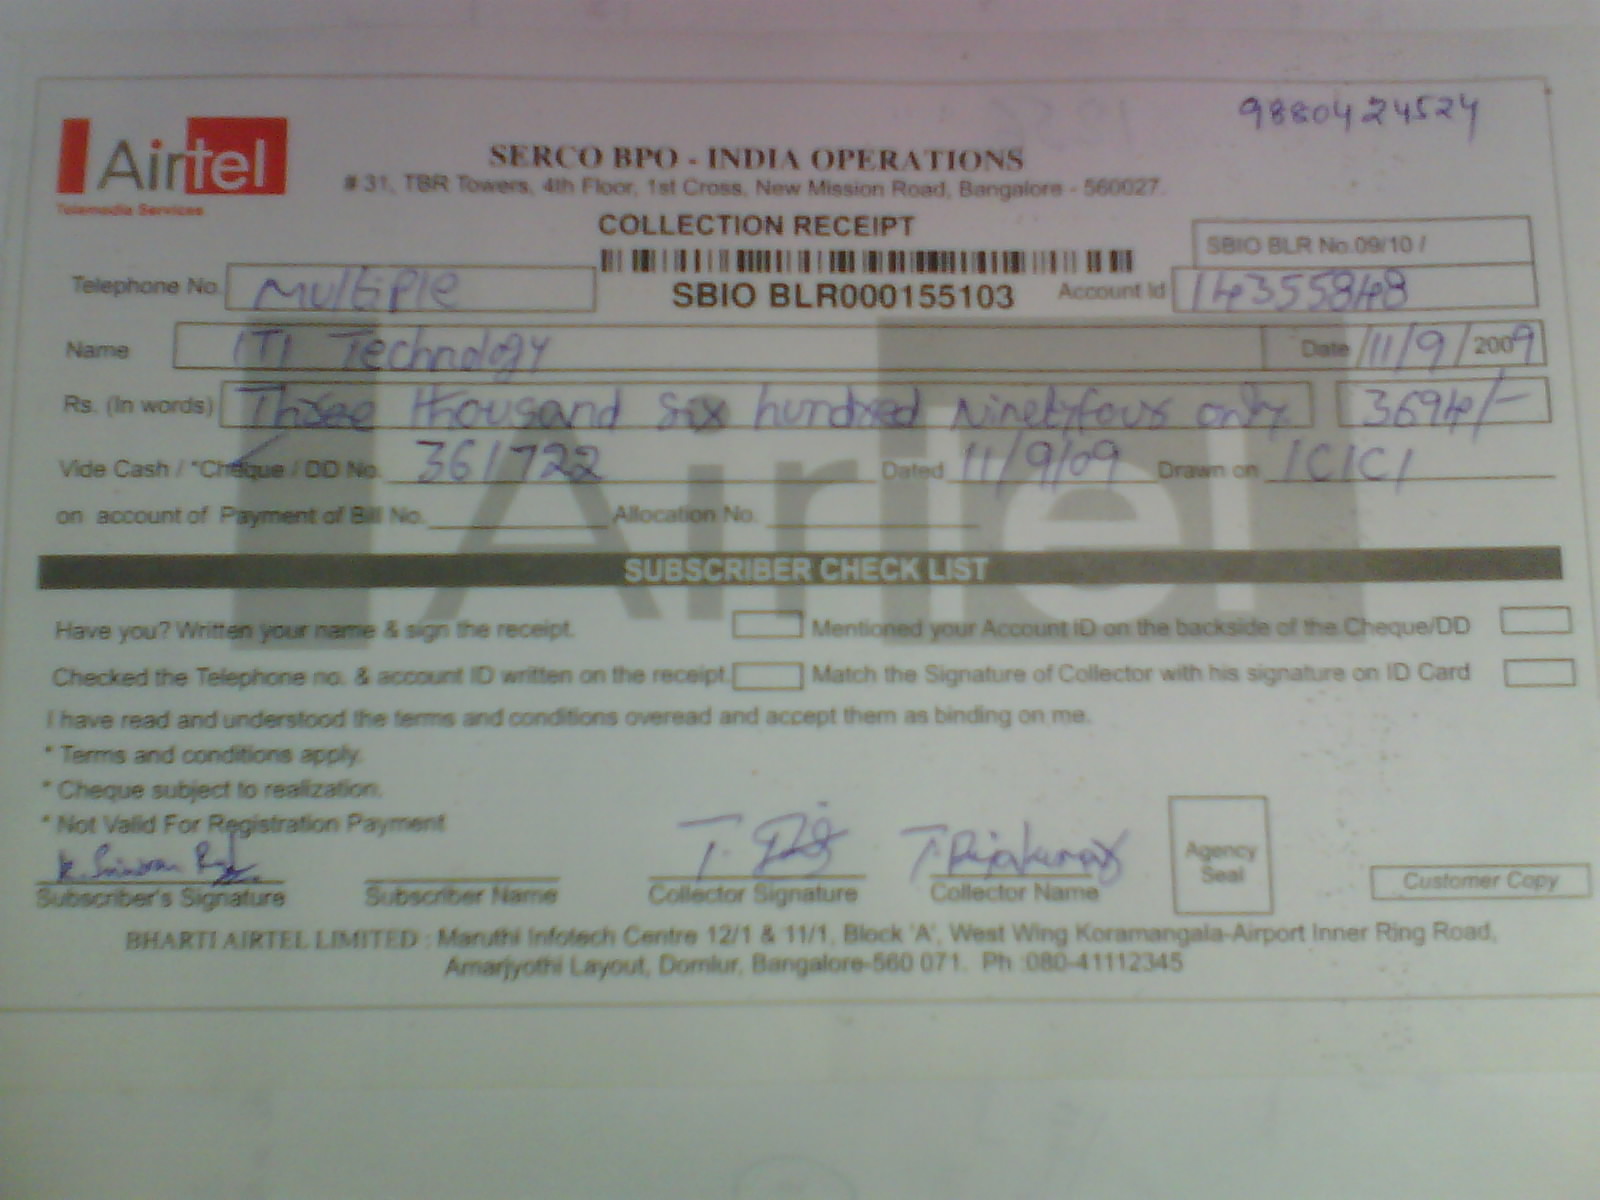 9880424524
Airtel
Telemedia Services
SERCO BPO - INDIA OPERATIONS
# 31, TBR Towers, 4th Floor, 1st Cross, New Mission Road, Bangalore - 560027.
COLLECTION RECEIPT
SBIO BLR No.09/10 /
Telephone No. Multiple SBIO BLR000155103 Account Id 14355848
Name ITI Technology Date 11/9/2009
Rs. (In words) Three thousand six hundred Ninetyfour only 3694/-
Vide Cash / *Cheque / DD No. 361722 Dated 11/9/09 Drawn on ICICI
on account of Payment of Bill No. Allocation No.
Airtel
SUBSCRIBER CHECK LIST
Have you? Written your name & sign the receipt. Mentioned your Account ID on the backside of the Cheque/DD
Checked the Telephone no. & account ID written on the receipt. Match the Signature of Collector with his signature on ID Card
I have read and understood the terms and conditions overead and accept them as binding on me.
* Terms and conditions apply.
* Cheque subject to realization.
* Not Valid For Registration Payment
T. T. Rajakumar Agency Seal
Subscriber's Signature Subscriber Name Collector Signature Collector Name Customer Copy
BHARTI AIRTEL LIMITED : Maruthi Infotech Centre 12/1 & 11/1, Block 'A', West Wing Koramangala-Airport Inner Ring Road,
Amarjyothi Layout, Domlur, Bangalore-560 071. Ph :080-41112345